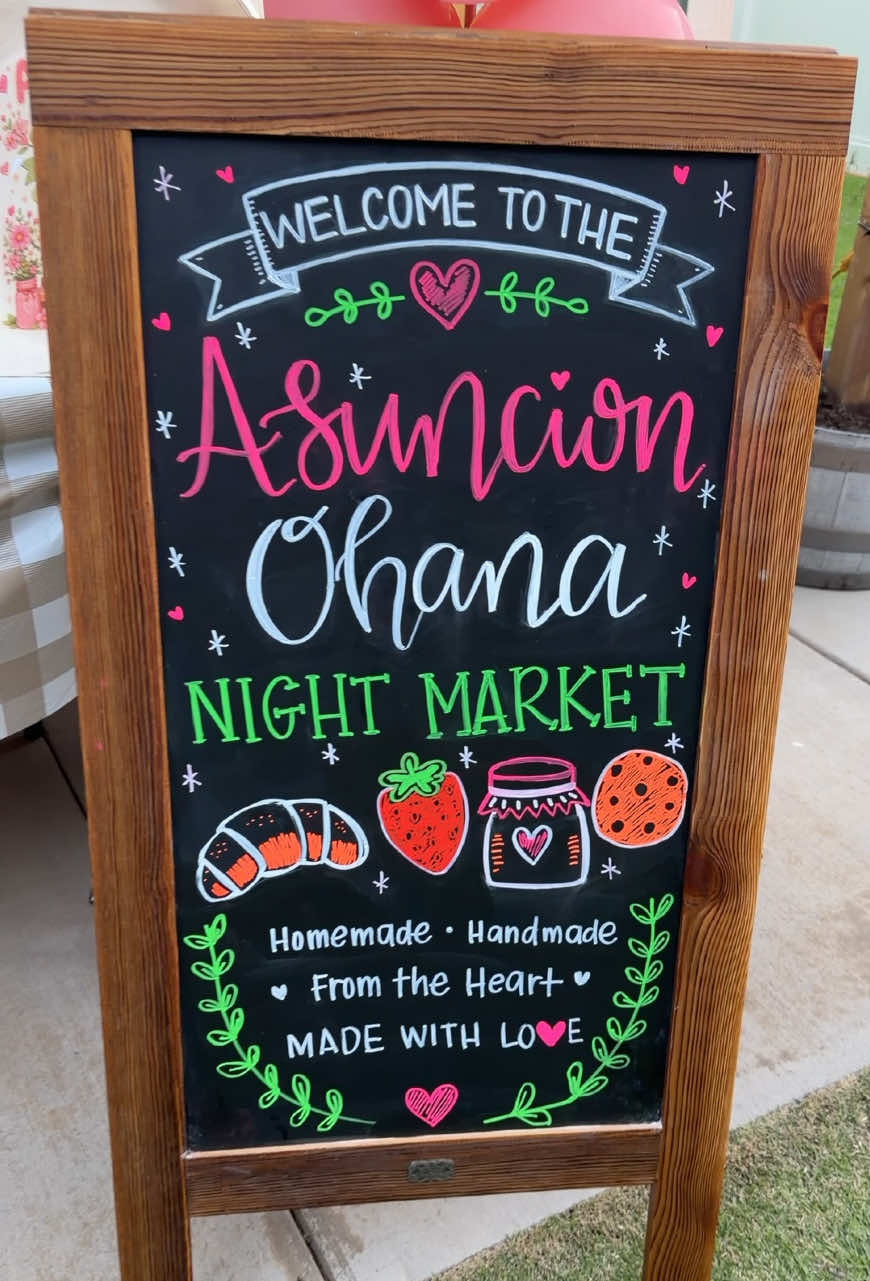 WELCOME TO THE
Asuncion
Ohana
NIGHT MARKET
Homemade · Handmade
♥ From the Heart ♥
MADE WITH LO♥E